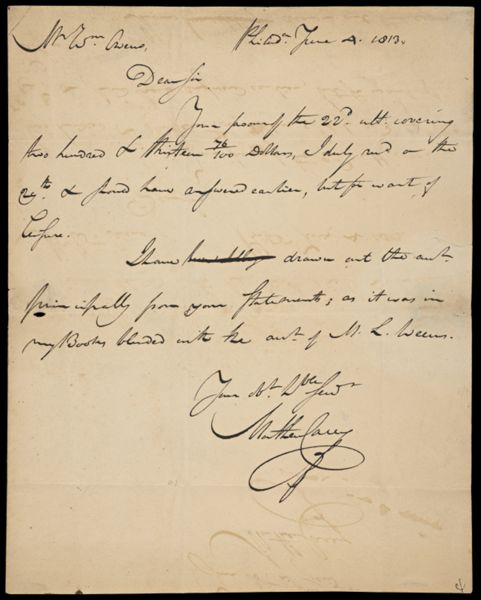 Mr Wm Owens,    Philada June 4. 1813.
Dear Sir
Your favour of the 22d. ult. covering
two hundred & thirteen 76/100 Dollars, I duly recd on the
29th. & should have answered earlier, but for want of
Leisure.
I have drawn out the acct.
principally from your Statements; as it was in
my Books blended with the acct. of M. L. Weems.
Your Obt. Hble Servt
Mathew Carey